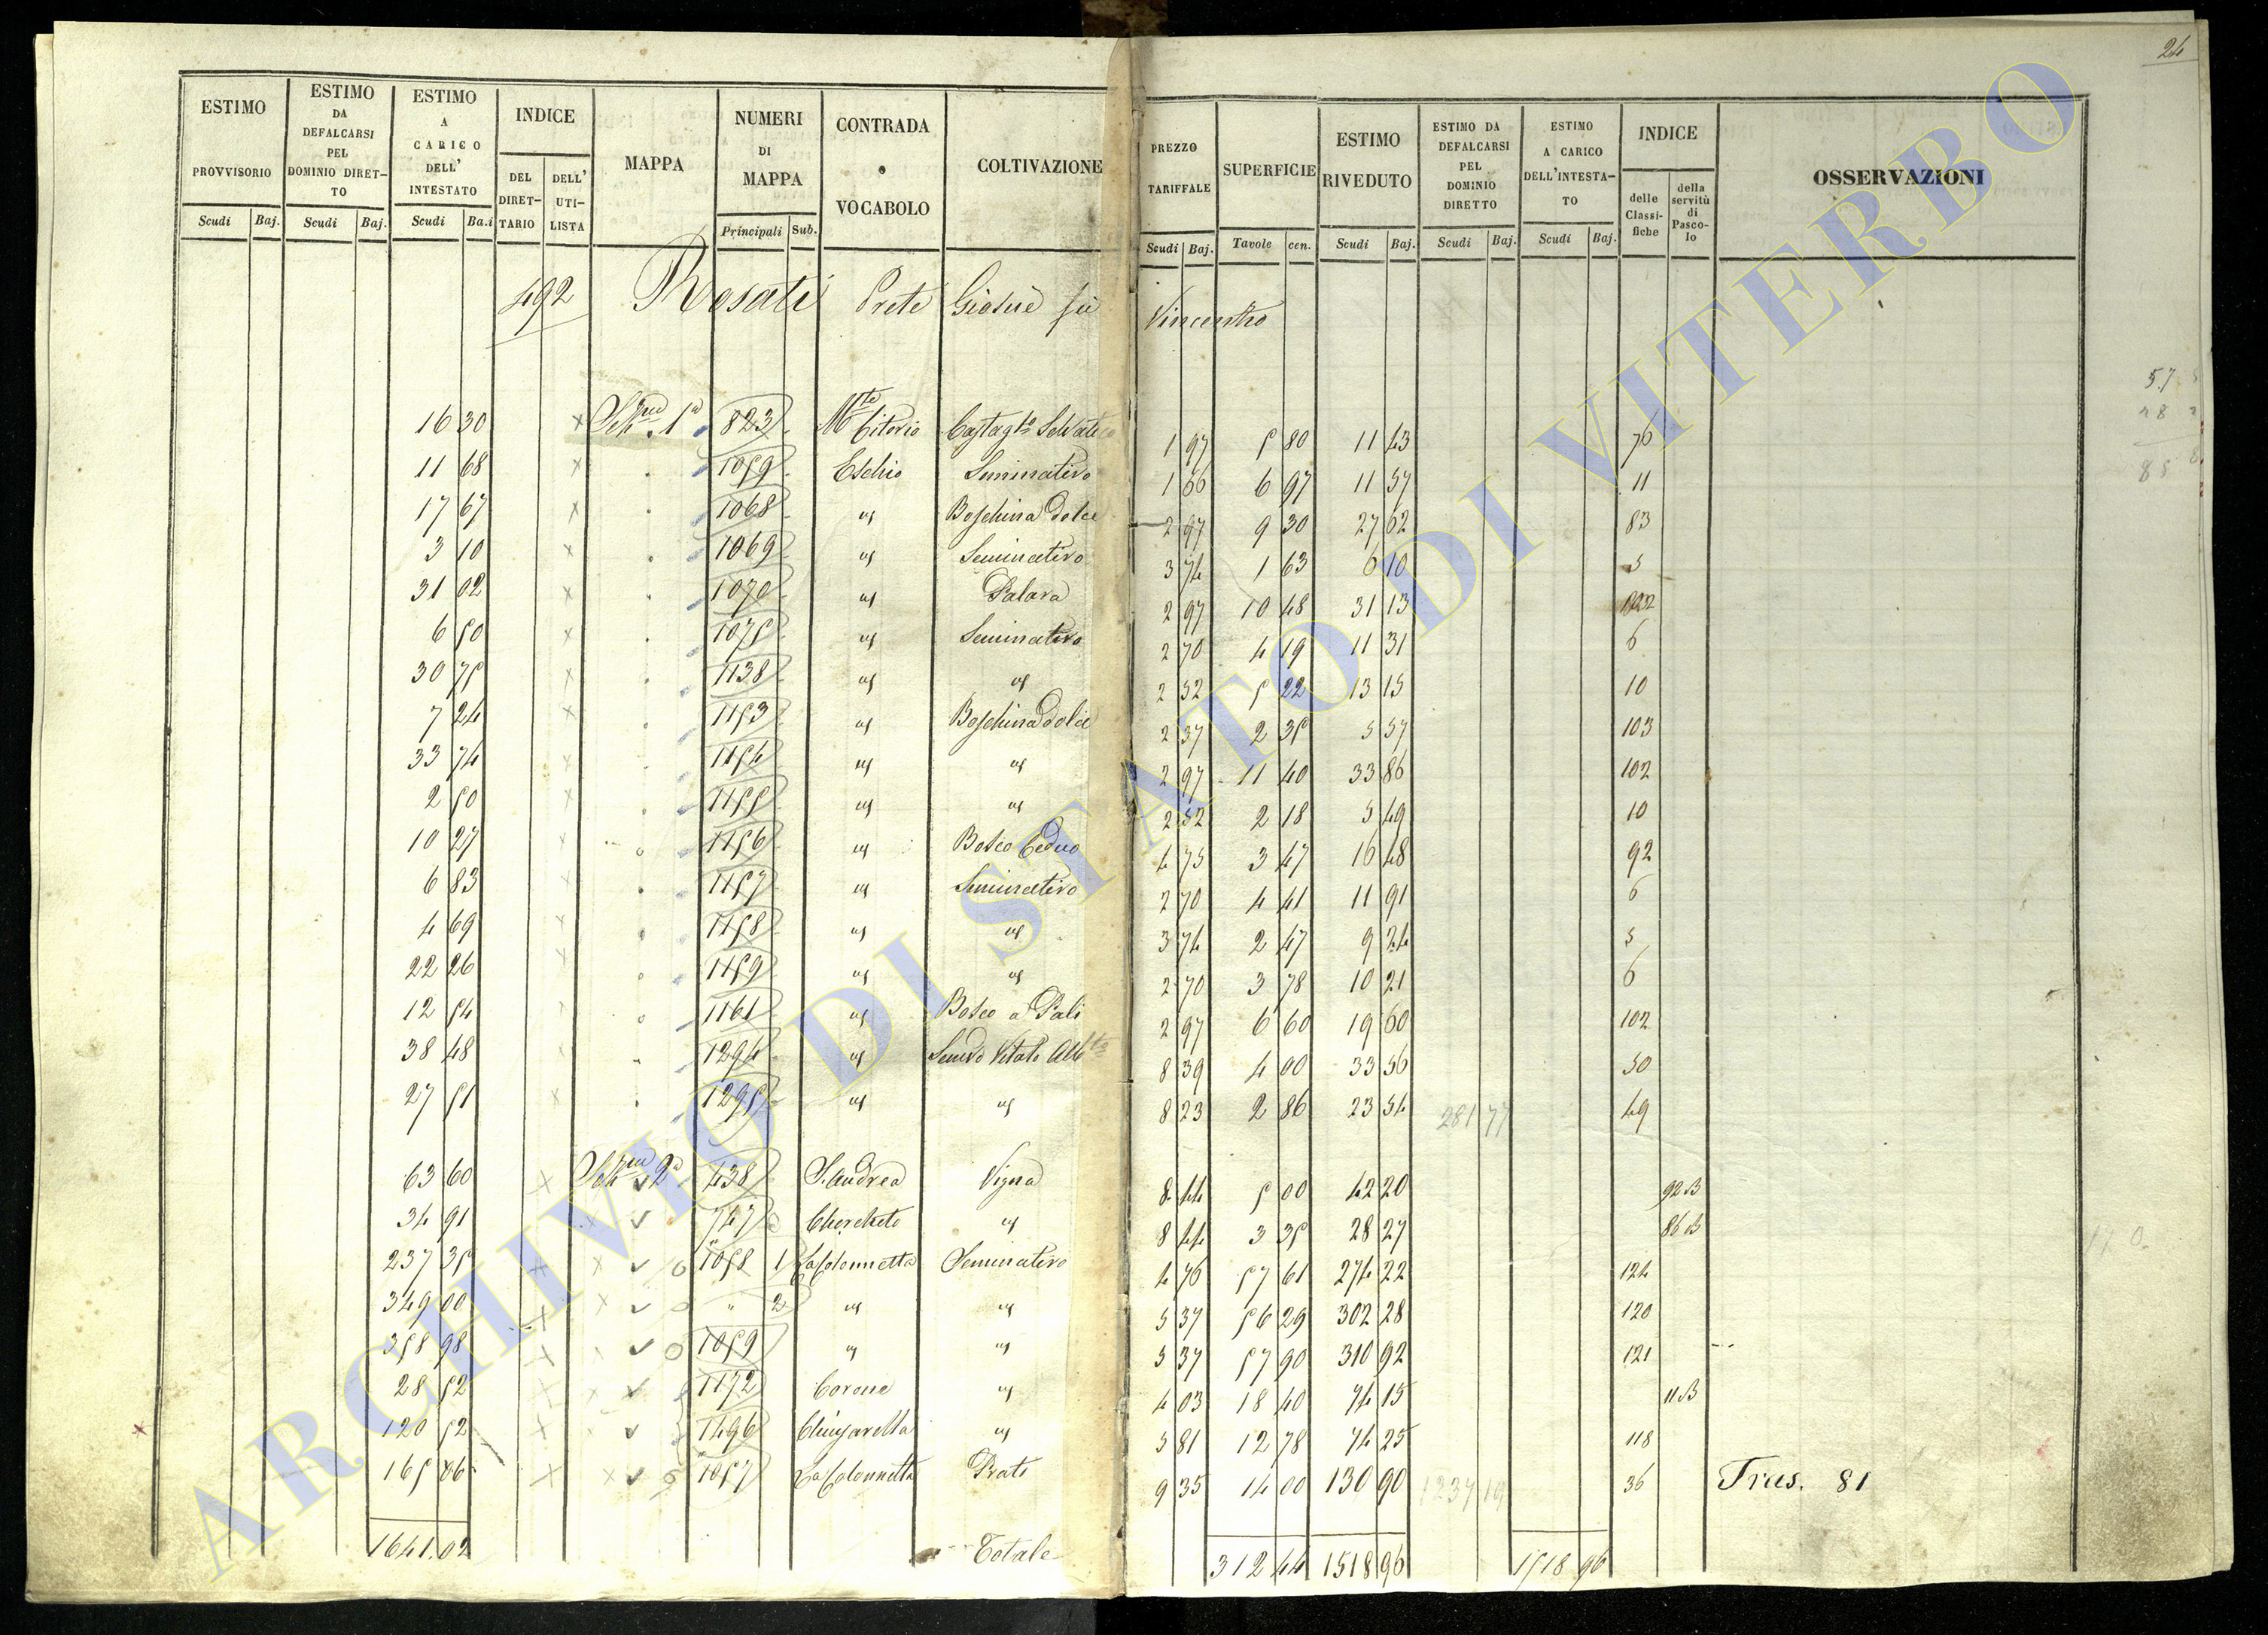 24
ESTIMO PROVVISORIO Scudi Baj.
ESTIMO DA DEFALCARSI PEL DOMINIO DIRETTO Scudi Baj.
ESTIMO A CARICO DELL' INTESTATO Scudi Ba.i
INDICE DEL DIRETTARIO DELL' UTILISTA
MAPPA
NUMERI DI MAPPA Principali Sub.
CONTRADA o VOCABOLO
COLTIVAZIONE
PREZZO TARIFFALE Scudi Baj.
SUPERFICIE Tavole cen.
ESTIMO RIVEDUTO Scudi Baj.
ESTIMO DA DEFALCARSI PEL DOMINIO DIRETTO Scudi Baj.
ESTIMO A CARICO DELL'INTESTATO Scudi Baj.
INDICE delle Classifiche della servitù di Pascolo
OSSERVAZIONI
492 Rosati Prete Giosuè fu Vincenzo
16 30 × Sez.ne 1ª 823 M.te Citorio Castag.to Selvatico 1 97 5 80 11 43 76
11 68 × 1059 Eschio Seminativo 1 66 6 97 11 57 11
17 67 × 1068 us Boschina dolce 2 97 9 30 27 62 83
3 10 × 1069 us Seminativo 3 74 1 63 6 10 5
31 02 × 1070 us Palara 2 97 10 48 31 13 102
6 50 × 1075 us Seminativo 2 70 4 19 11 31 6
30 75 × 1138 us us 2 52 5 22 13 15 10
7 24 × 1153 us Boschina dolce 2 37 2 35 5 57 103
33 74 × 1154 us us 2 97 11 40 33 86 102
2 50 × 1155 us us 2 52 2 18 5 49 10
10 27 × 1156 us Bosco Ceduo 4 75 3 47 16 48 92
6 83 × 1157 us Seminativo 2 70 4 41 11 91 6
4 69 × 1158 us us 3 74 2 47 9 24 5
22 26 × 1159 us us 2 70 3 78 10 21 6
12 54 1161 us Bosco a Pali 2 97 6 60 19 60 102
38 48 1294 us Semvo Vitato Alb.to 8 39 4 00 33 56 50
27 51 × 1295 us us 8 23 2 86 23 54 281 77 49
63 60 × Sez.ne 2ª 438 S. Andrea Vigna 8 44 5 00 42 20 92 B
34 91 × 747 Chercheto us 8 44 3 35 28 27 86 B
237 35 × × 1058 1 La Colonnetta Seminativo 4 76 57 61 274 22 124
349 00 × × " 2 us us 5 37 56 29 302 28 120
358 98 × 1059 us us 5 37 57 90 310 92 121
28 52 × × 1172 Corone us 4 03 18 40 74 15 11 B
120 52 × × 1496 us 5 81 12 78 74 25 118
165 06 × × 1057 La Colonnetta Prato 9 35 14 00 130 90 1237 19 36 Tras. 81
1641.02 Totale 312 44 1518 96 1518 96
57
28
85
ARCHIVIO DI STATO DI VITERBO